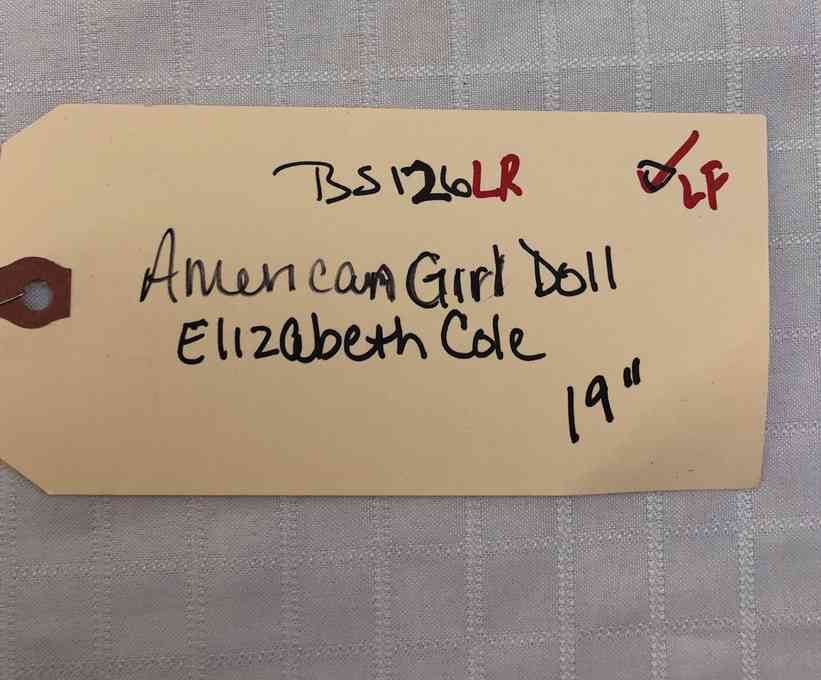 BS126LR
LF
American Girl Doll
Elizabeth Cole
19"